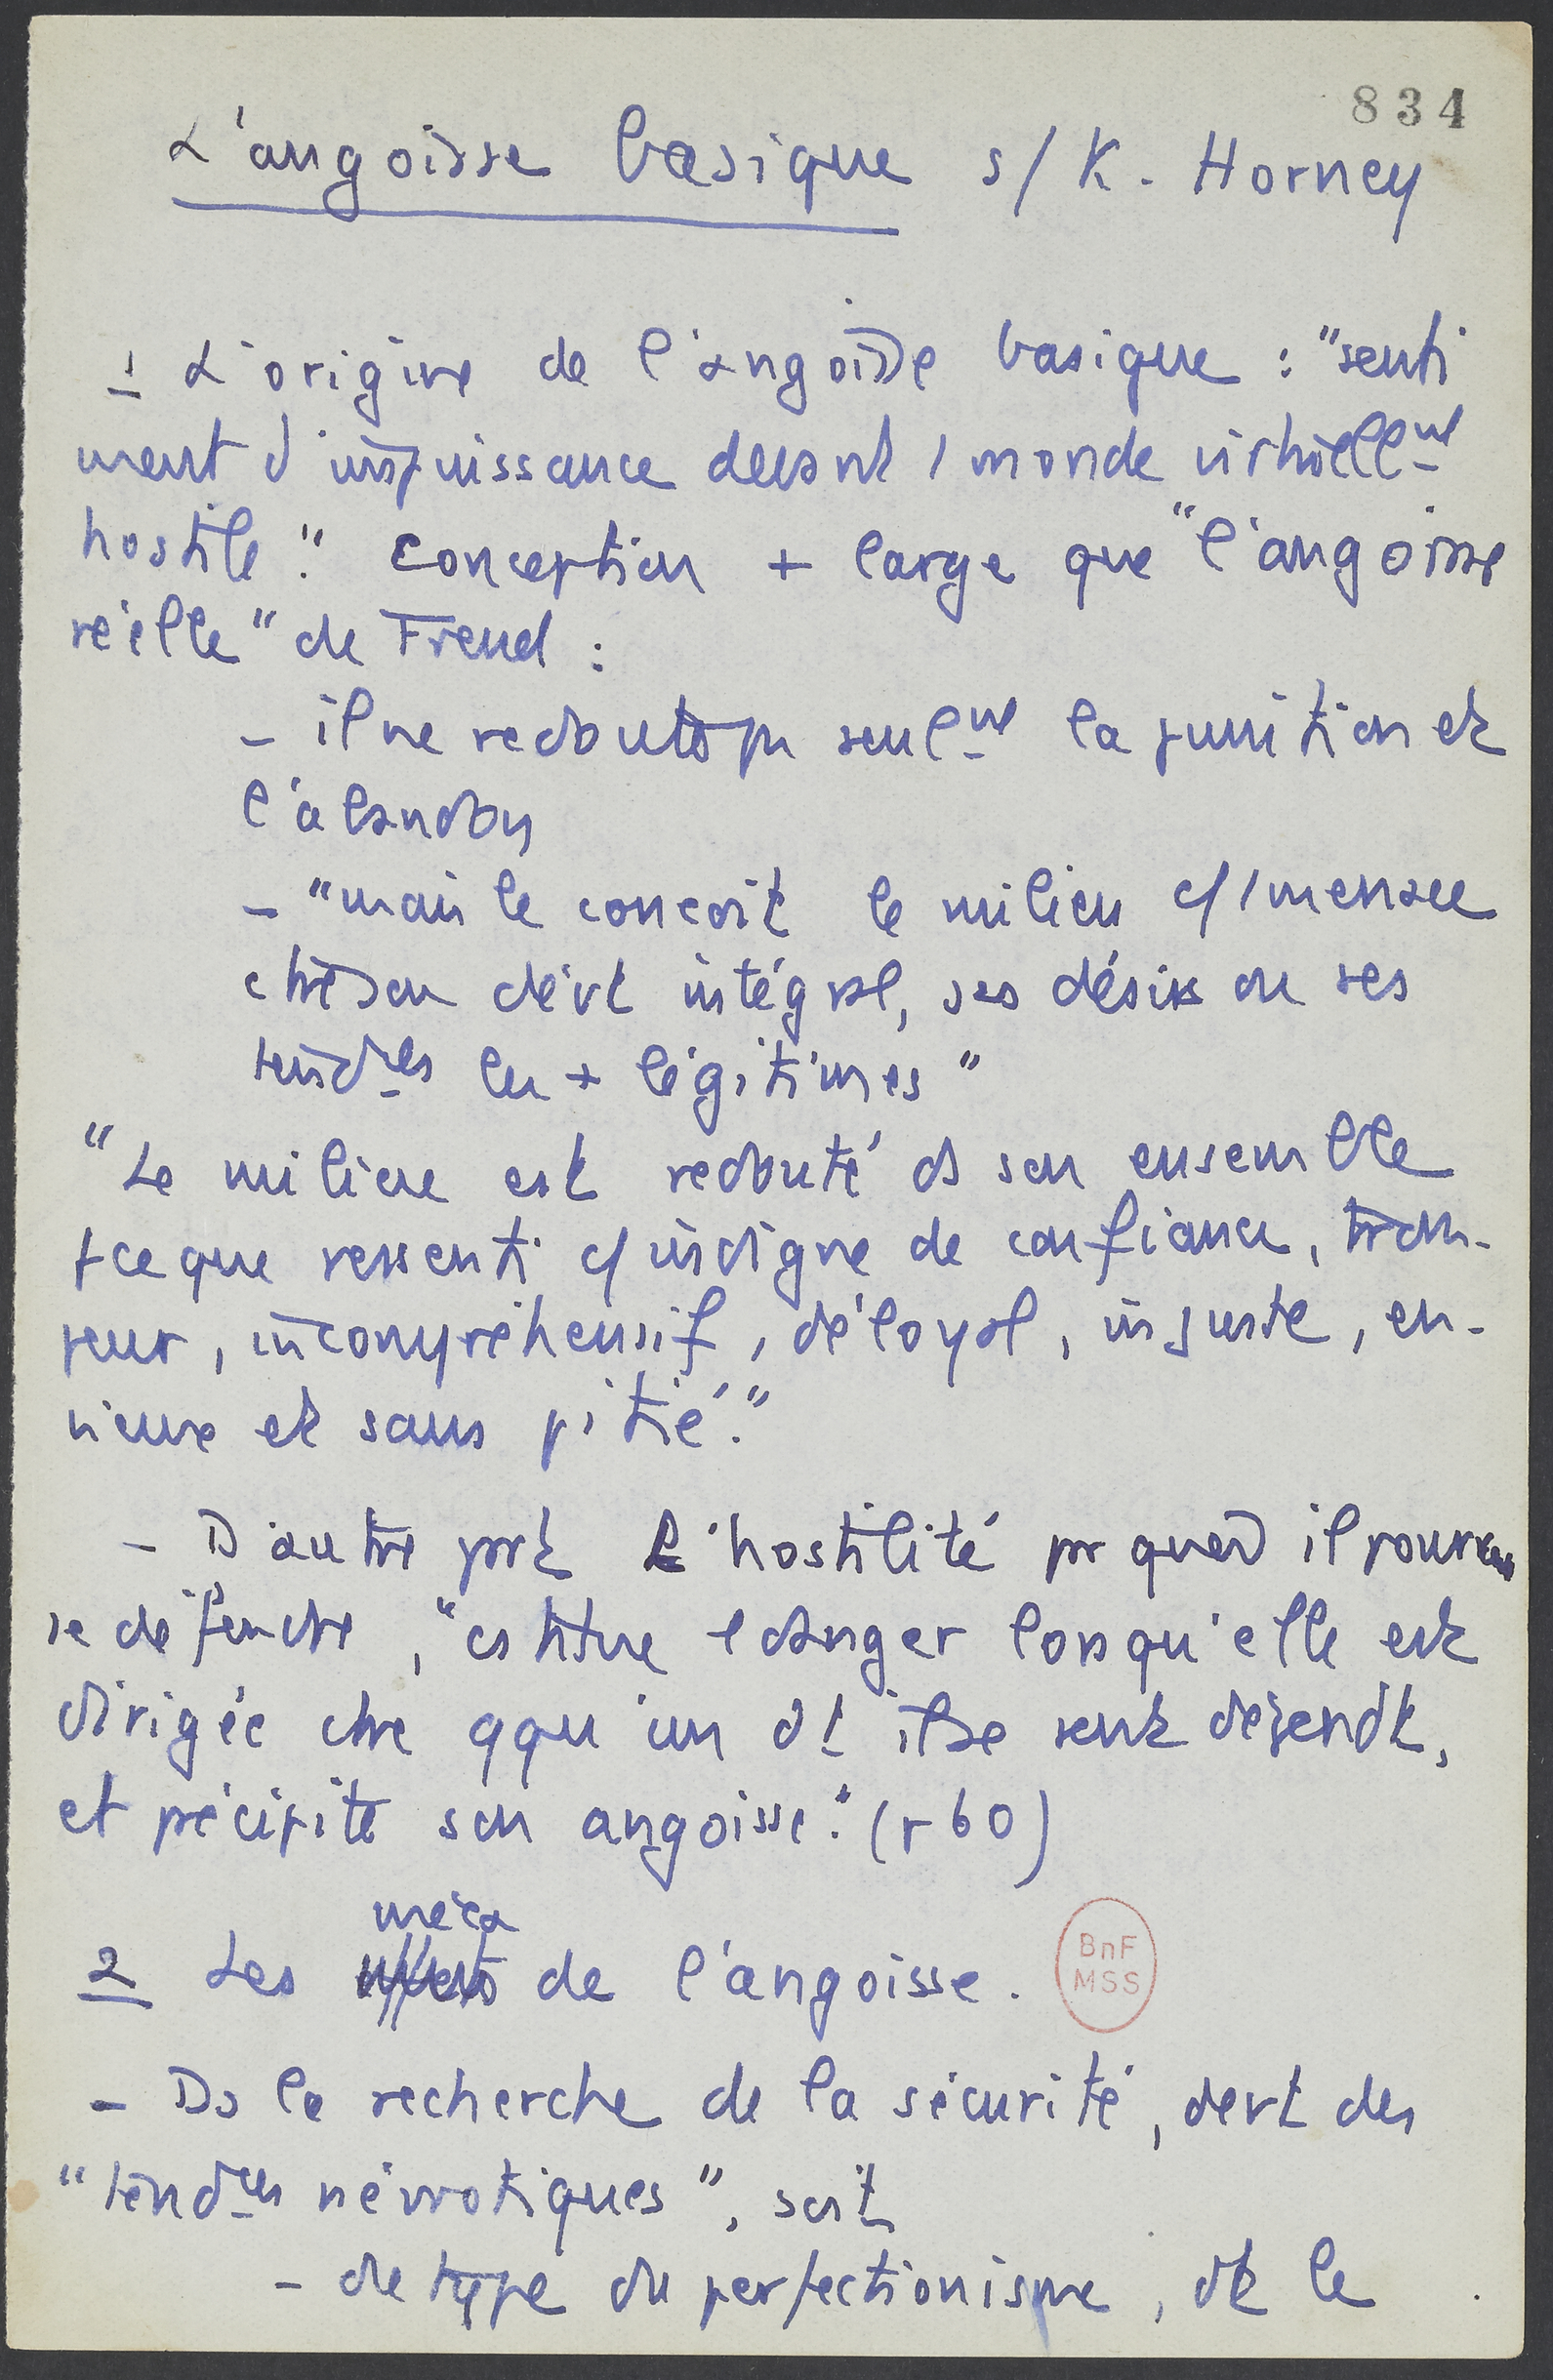 834
L'angoisse basique s/ K. Horney
1 L'origine de l'angoisse basique : "senti
ment d'impuissance devant 1 monde virtuellmt
hostile". Conception + large que "l'angoisse
réelle" de Freud :
- il ne redoute pas seulmt la punition et
l'abandon
- "mais le conçoit le milieu c/ 1 menace
ctre son dévt intégral, ses désirs ou ses
tendces les + légitimes"
"Le milieu est redouté ds son ensemble
pceque ressenti c/ indigne de confiance, trom-
peur, incompréhensif, déloyal, injuste, en-
vieux et sans pitié."
- D'autre part l'hostilité par quoi il pourrait
se défendre, "cstitue 1 danger lorsqu'elle est
dirigée ctre qqu'un dt il se sent dépendt,
et précipite son angoisse." (p 60)
méca
2 Les effets de l'angoisse.
BnF
MSS
- Ds la recherche de la sécurité, devt des
"tendces névrotiques", soit
- du type du perfectionisme, dt le